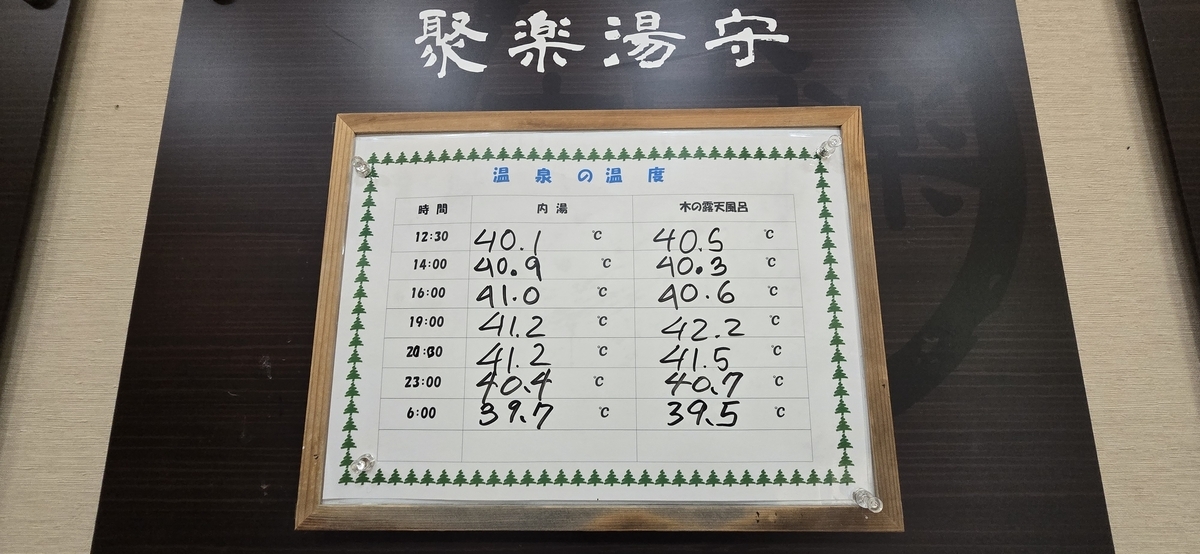 聚楽湯守
温泉の温度
時間 内湯 木の露天風呂
12:30 40.1 ℃ 40.5 ℃
14:00 40.9 ℃ 40.3 ℃
16:00 41.0 ℃ 40.6 ℃
19:00 41.2 ℃ 42.2 ℃
41.2 ℃ 41.5 ℃
23:00 40.4 ℃ 40.7 ℃
6:00 39.7 ℃ 39.5 ℃